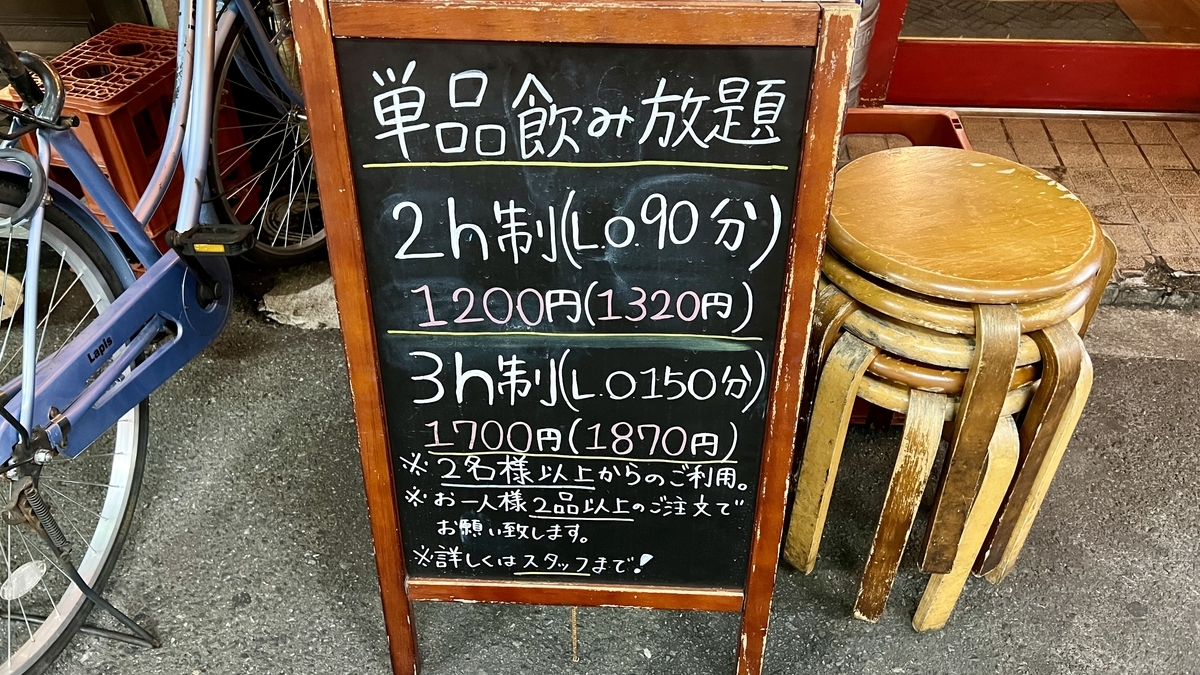 単品飲み放題
2h制(L.O.90分)
1200円(1320円)
3h制(L.O150分)
1700円(1870円)
※2名様以上からのご利用。
※お一人様2品以上のご注文で
お願い致します。
※詳しくはスタッフまで!
Lapis